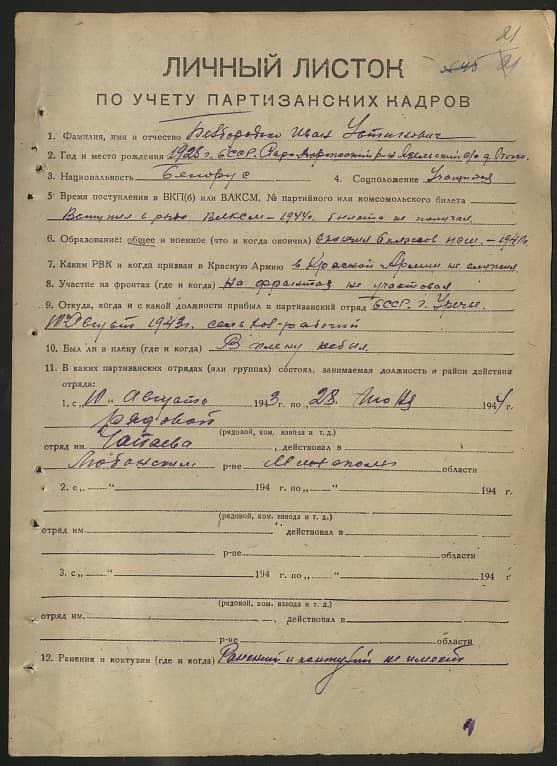 21
№45 21
ЛИЧНЫЙ ЛИСТОК
ПО УЧЕТУ ПАРТИЗАНСКИХ КАДРОВ
1. Фамилия, имя и отчество Безбородко Иван Устинович
2. Год и место рождения 1923 г. БССР. р-н с/с д.
3. Национальность Белорус 4. Соцположение Учащийся
5. Время поступления в ВКП(б) или ВЛКСМ, № партийного или комсомольского билета
Вступил в ряды ВЛКСМ – 1944 г. билета не получал
6. Образование: общее и военное (что и когда окончил) окончил 6 классов – 1941 г.
7. Каким РВК и когда призван в Красную Армию в Красной Армии не служил
8. Участие на фронтах (где и когда) На фронтах не участвовал
9. Откуда, когда и с какой должности прибыл в партизанский отряд БССР. г. Уречье.
10 Август 1943 г.
10. Был ли в плену (где и когда) В плену не был.
11. В каких партизанских отрядах (или группах) состоял, занимаемая должность и район действия
отряда:
1. с „10 “ Августа 1943 г. по „28 “ Июня 1944 г.
Рядовой
(рядовой, ком. взвода и т. д.)
отряд им. Чапаева, действовал в
Любанским р-не Минской области
2. с „ “ 194 г. по „ “ 194 г.
(рядовой, ком. взвода и т. д.)
отряд им. , действовал в
р-не области
3. с „ “ 194 г. по „ “ 194 г
(рядовой, ком. взвода и т. д.)
отряд им. , действовал в
р-не области
12. Ранения и контузии (где и когда) Ранений и контузий не имеет